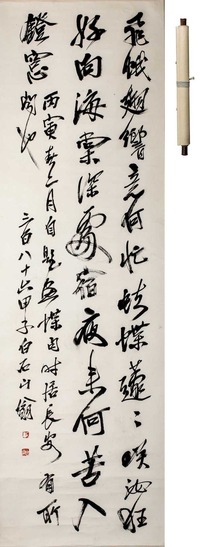 飛蛾翅響意何忙蛺蝶蘧〻咲汝狂
好向海棠深處宿夜來何苦入
鐙窓
丙寅春二月自題画蝶句時居長安有所
聞也
三百八十六甲子白石山翁